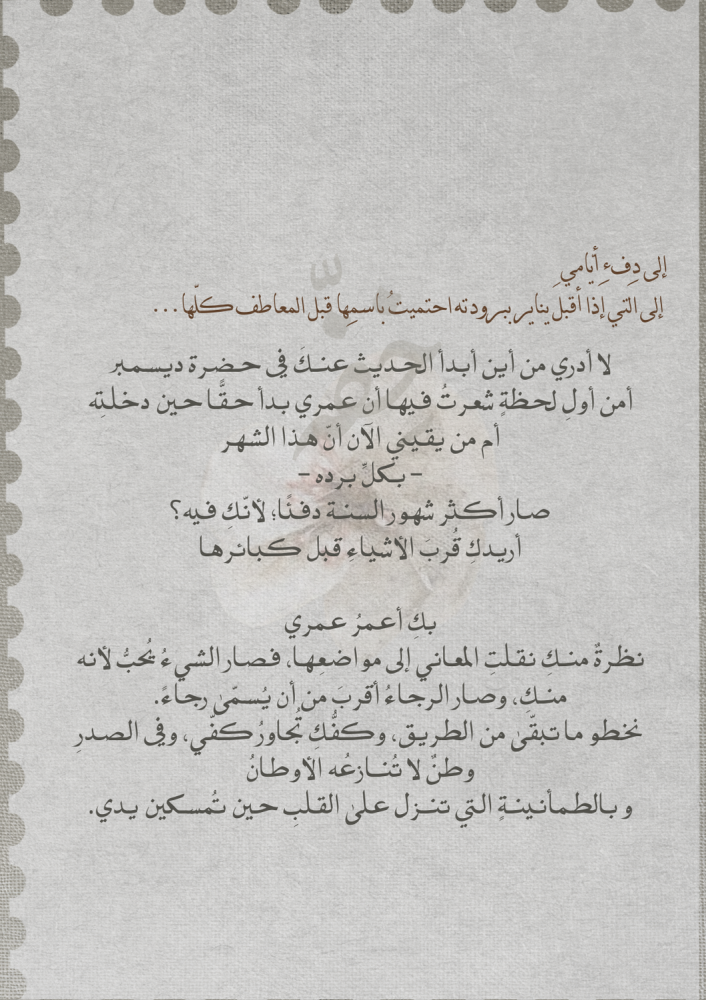 إلى دِفءِ أيامي
إلى التي إذا أقبل يناير ببرودته احتميتُ باسمِها قبل المعاطف كلّها...
لا أدري من أين أبدأ الحديث عنكَ في حضرة ديسمبر
أمن أولِ لحظةٍ شعرتُ فيها أن عمري بدأ حقًّا حين دخلتِه
أم من يقيني الآن أنّ هذا الشهر
- بكلِّ برده -
صار أكثر شهور السنة دفئًا؛ لأنّكِ فيه؟
أريدكِ قُربَ الأشياءِ قبل كبائرها
بكِ أعمرُ عمري
نظرةٌ منكِ نقلتِ المعاني إلى مواضعِها، فصار الشيءُ يُحَبُّ لأنه
منكِ، وصار الرجاءُ أقربَ من أن يُسمّىٰ رجاءً.
نخطو ما تبقّىٰ من الطريق، وكفُّكِ تُجاورُ كفّي، وفي الصدرِ
وطنٌ لا تُنازعُه الأوطانُ
وبالطمأنينةِ التي تنزل علىٰ القلبِ حين تُمسكين يدي.